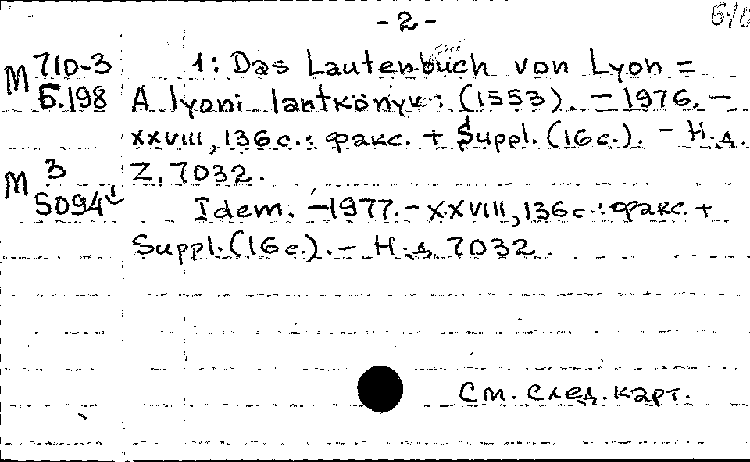 - 2 -
М 710-3
Б.198
1: Das Lautenbuch von Lyon =
A lyoni lantkönyv: (1553). – 1976. –
XXVIII, 136 с.: факс. + Suppl. (16 с.). – Н.д.
Z. 7032.
М 3
5094
Idem. – 1977. – XXVIII, 136 с.: факс. +
Suppl. (16 с.). – Н.д. 7032.
См. след. карт.